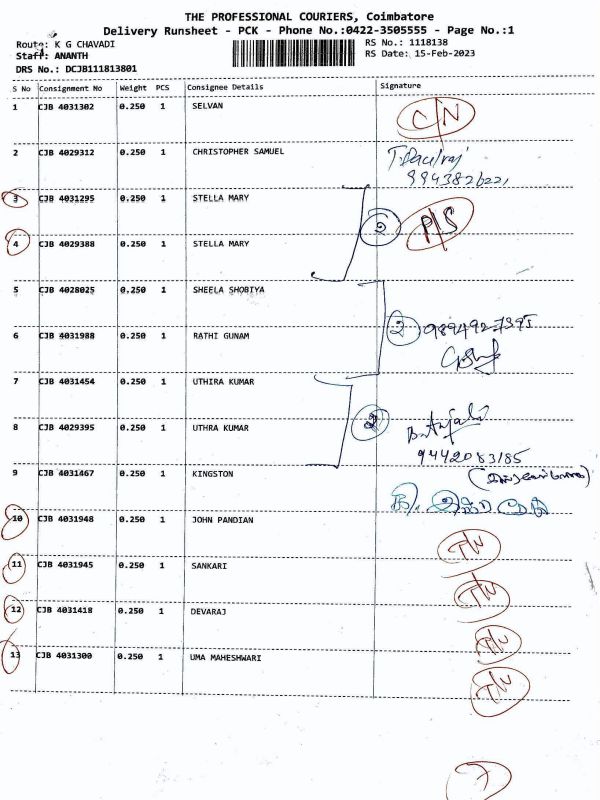 THE PROFESSIONAL COURIERS, Coimbatore
Delivery Runsheet - PCK - Phone No.:0422-3505555 - Page No.:1
Route: K G CHAVADI
RS No.: 1118138
Staff: ANANTH
RS Date: 15-Feb-2023
DRS No.: DCJB111813801
S No Consignment No Weight PCS Consignee Details Signature
1 CJB 4031302 0.250 1 SELVAN C/N
2 CJB 4029312 0.250 1 CHRISTOPHER SAMUEL
3 CJB 4031295 0.250 1 STELLA MARY 2 P/S
4 CJB 4029388 0.250 1 STELLA MARY
5 CJB 4028025 0.250 1 SHEELA SHOBIYA
2
6 CJB 4031988 0.250 1 RATHI GUNAM
7 CJB 4031454 0.250 1 UTHIRA KUMAR
2
8 CJB 4029395 0.250 1 UTHRA KUMAR
9442083185
9 CJB 4031467 0.250 1 KINGSTON
10 CJB 4031948 0.250 1 JOHN PANDIAN
11 CJB 4031945 0.250 1 SANKARI
12 CJB 4031418 0.250 1 DEVARAJ
13 CJB 4031300 0.250 1 UMA MAHESHWARI
7